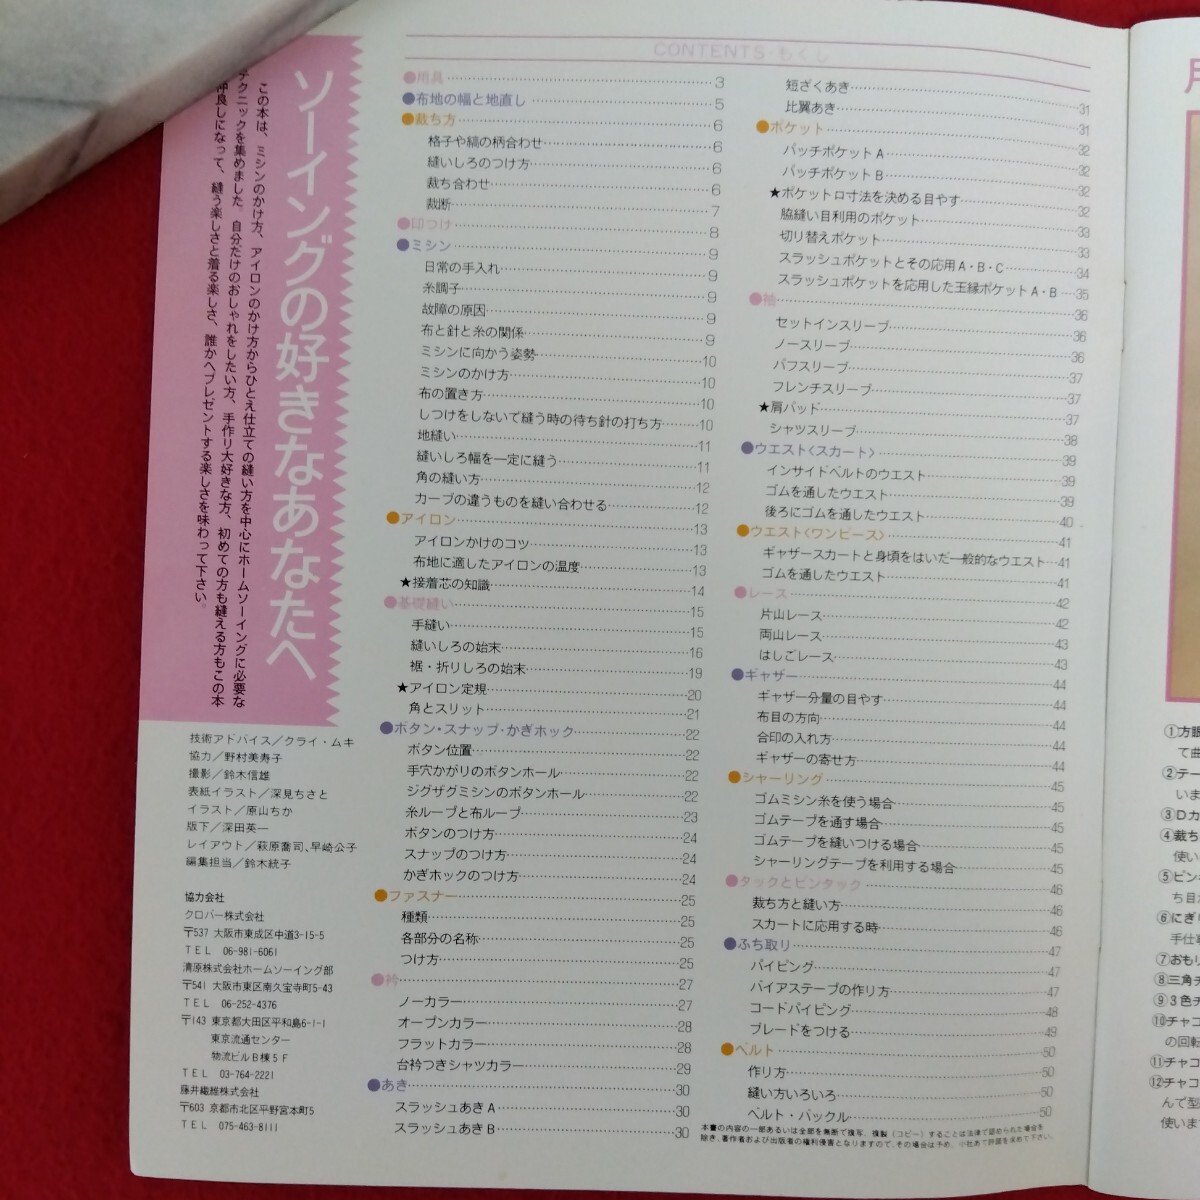 ソーイングの好きなあなたへ
この本は、ミシンのかけ方、アイロンのかけ方からひとえ仕立ての縫い方を中心にホームソーイングに必要な
テクニックを集めました。自分だけのおしゃれをしたい方、手作り大好きな方、初めての方も縫える方もこの本
仲良しになって、縫う楽しさと着る楽しさ、誰かへプレゼントする楽しさを味わって下さい。
技術アドバイス／クライ・ムキ
協力／野村美寿子
撮影／鈴木信雄
表紙イラスト／深見ちさと
イラスト／原山ちか
版下／深田英一
レイアウト／萩原喬司、早崎公子
編集担当／鈴木統子
協力会社
クロバー株式会社
〒537 大阪市東成区中道3-15-5
TEL 06-981-6061
清原株式会社ホームソーイング部
〒541 大阪市東区南久宝寺町5-43
TEL 06-252-4376
〒143 東京都大田区平和島6-1-1
東京流通センター
物流ビルB棟5F
TEL 03-764-2221
藤井繊維株式会社
〒603 京都市北区平野宮本町5
TEL 075-463-8111
CONTENTS・もくじ
●用具……3
●布地の幅と地直し……5
●裁ち方……6
格子や縞の柄合わせ……6
縫いしろのつけ方……6
裁ち合わせ……6
裁断……7
●印つけ……8
●ミシン……9
日常の手入れ……9
糸調子……9
故障の原因……9
布と針と糸の関係……9
ミシンに向かう姿勢……10
ミシンのかけ方……10
布の置き方……10
しつけをしないで縫う時の待ち針の打ち方……10
地縫い……11
縫いしろ幅を一定に縫う……11
角の縫い方……12
カーブの違うものを縫い合わせる……12
●アイロン……13
アイロンかけのコツ……13
布地に適したアイロンの温度……13
★接着芯の知識……14
●基礎縫い……15
手縫い……15
縫いしろの始末……16
裾・折りしろの始末……19
★アイロン定規……20
角とスリット……21
●ボタン・スナップ・かぎホック……22
ボタン位置……22
手穴かがりのボタンホール……22
ジグザグミシンのボタンホール……22
糸ループと布ループ……23
ボタンのつけ方……24
スナップのつけ方……24
かぎホックのつけ方……24
●ファスナー……25
種類……25
各部分の名称……25
つけ方……25
●衿……27
ノーカラー……27
オープンカラー……28
フラットカラー……28
台衿つきシャツカラー……29
●あき……30
スラッシュあきA……30
スラッシュあきB……30
短ざくあき……31
比翼あき……31
●ポケット……32
パッチポケットA……32
パッチポケットB……32
★ポケット口寸法を決める目やす……32
脇縫い目利用のポケット……33
切り替えポケット……33
スラッシュポケットとその応用A・B・C……34
スラッシュポケットを応用した玉縁ポケットA・B……35
●袖……36
セットインスリーブ……36
ノースリーブ……36
パフスリーブ……37
フレンチスリーブ……37
★肩パッド……37
シャツスリーブ……38
●ウエスト〈スカート〉……39
インサイドベルトのウエスト……39
ゴムを通したウエスト……39
後ろにゴムを通したウエスト……40
●ウエスト〈ワンピース〉……41
ギャザースカートと身頃をはいだ一般的なウエスト…41
ゴムを通したウエスト……41
●レース……42
片山レース……42
両山レース……43
はしごレース……43
●ギャザー……44
ギャザー分量の目やす……44
布目の方向……44
合印の入れ方……44
ギャザーの寄せ方……44
●シャーリング……45
ゴムミシン糸を使う場合……45
ゴムテープを通す場合……45
ゴムテープを縫いつける場合……45
シャーリングテープを利用する場合……45
●タックとピンタック……46
裁ち方と縫い方……46
スカートに応用する時……46
●ふち取り……47
パイピング……47
バイアステープの作り方……47
コードパイピング……48
ブレードをつける……49
●ベルト……50
作り方……50
縫い方いろいろ……50
ベルト・バックル……50
本書の内容の一部あるいは全部を無断で複写、複製（コピー）することは法律で認められた場合を
除き、著作者および出版者の権利侵害となりますので、その場合は予め、小社あて許諾を求めて下さい。
①方眼
て曲
②テー
いま
③Dカ
④裁ち
使い
⑤ピン
ち目
⑥にぎり
手仕
⑦おもり
⑧三角チ
⑨3色チ
⑩チャコ
の回転
⑪チャコ
⑫チャコ
んで型
使いま